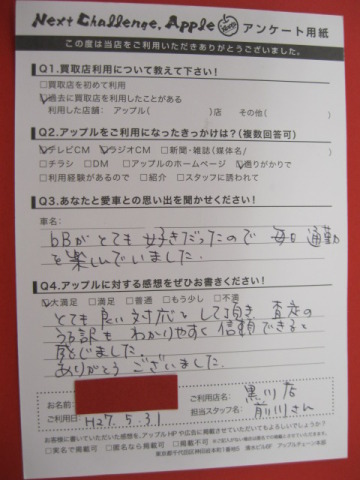 Next Challenge, Appleは アンケート用紙
この度は当店をご利用いただきありがとうございました。
Q1.買取店利用について教えて下さい!
□買取店を初めて利用
□過去に買取店を利用したことがある
利用した店舗: アップル( )店 その他( )
Q2.アップルをご利用になったきっかけは?(複数回答可)
□テレビCM □ラジオCM □新聞・雑誌(媒体名/ )
□チラシ □DM □アップルのホームページ □通りがかりで
□利用経験があるので □紹介 □スタッフに誘われて
Q3.あなたと愛車との思い出を聞かせください!
車名:
bBがとても好きだったので 毎日 通勤
を楽しんでいました。
Q4.アップルに対する感想をぜひお書きください!
□大満足 □満足 □普通 □もう少し □不満
とても良い対応をして頂き、査定の
内訳もわかりやすく信頼できると
感じました。
ありがとうございました。
お名前:
ご利用店名: 黒川店
ご利用日: H27.5.31
担当スタッフ名: 前川さん
お客様に書いていただいた感想を、アップルHPや広告に掲載させていただいてもよろしいでしょうか?
□実名で掲載可 □匿名なら掲載可 □掲載不可